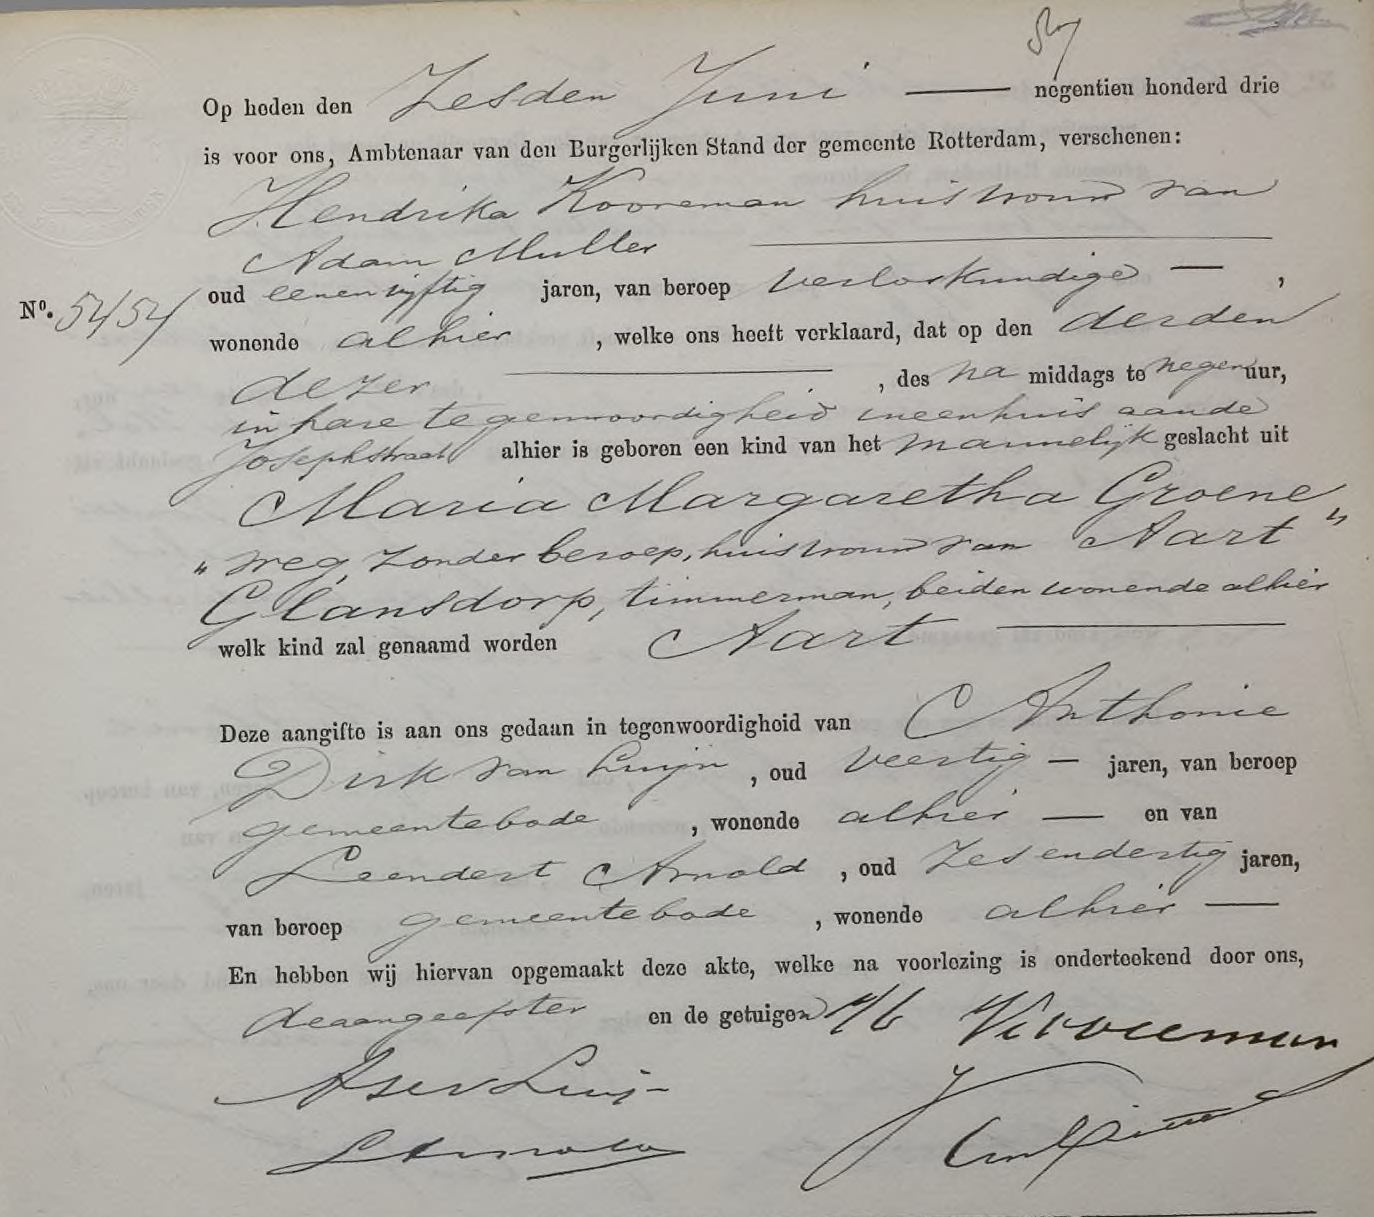 Op heden den Zesden Juni — negentien honderd drie
is voor ons, Ambtenaar van den Burgerlijken Stand der gemeente Rotterdam, verschenen:
Hendrika Kooreman huisvrouw van
Adam Muller
No. 5454 oud eenenvijftig jaren, van beroep verloskundige — ,
wonende alhier , welke ons heeft verklaard, dat op den derden
dezer , des na middags te negen uur,
in hare tegenwoordigheid in een huis aan de
Josephstraat alhier is geboren een kind van het mannelijk geslacht uit
Maria Margaretha Groene„
„weg, zonder beroep, huisvrouw van Aart
Glansdorp, timmerman, beiden wonende alhier
welk kind zal genaamd worden Aart
Deze aangifte is aan ons gedaan in tegenwoordigheid van Anthonie
Dirk van Luijn , oud veertig — jaren, van beroep
gemeentebode , wonende alhier — en van
Leendert Arnold , oud zesendertig jaren,
van beroep gemeentebode , wonende alhier —
En hebben wij hiervan opgemaakt deze akte, welke na voorlezing is onderteekend door ons,
de aangeefster en de getuigen
ADv Luijn
LArnold